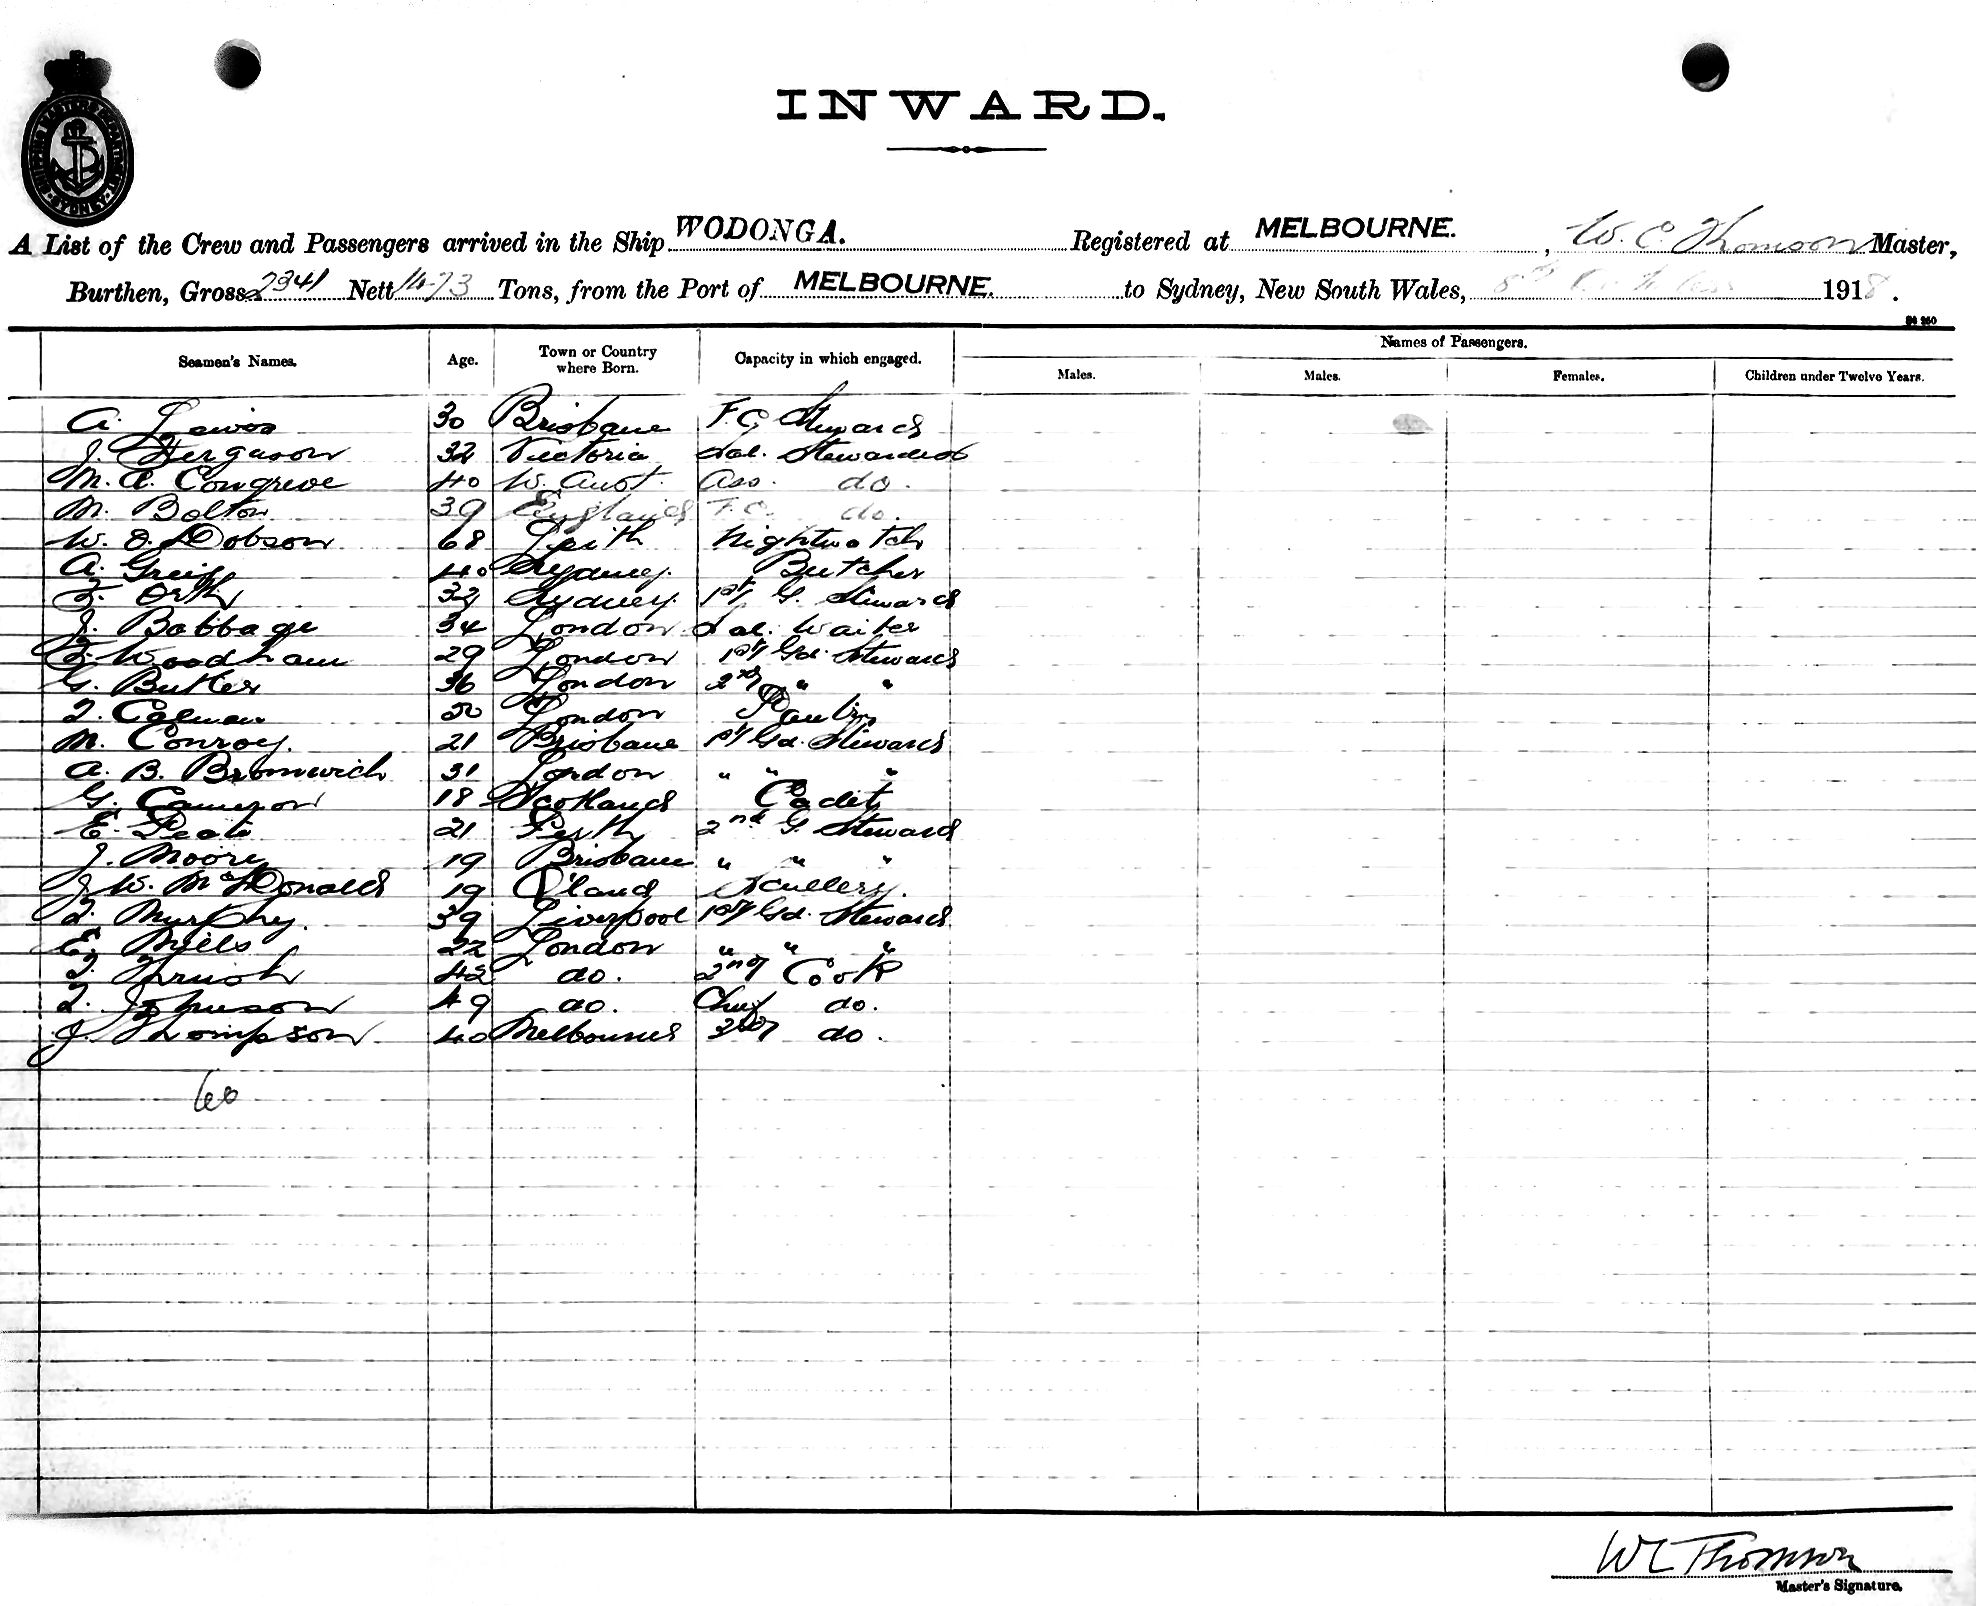 SHIPPING MASTER'S DEPARTMENT SYDNEY
INWARD.
A List of the Crew and Passengers arrived in the Ship WODONGA. Registered at MELBOURNE., W. C. Thomson Master,
Burthen, Gross 2341 Nett 1473 Tons, from the Port of MELBOURNE. to Sydney, New South Wales, 8th 1918.
Seamen's Names. Age. Town or Country where Born. Capacity in which engaged. Names of Passengers.
Males. Males. Females. Children under Twelve Years.
A. Lewos 30 Brisbane F.C. Steward
J. Ferguson 32 Victoria Sal. Stewardess
M. A. Congreve 40 W. Aust. Ass. do.
M. Bolton 39 England F.C. do.
W. O. Dobson 68 Leith Nightwatch
A. Greig 40 Sydney. Butcher
Orth 32 Sydney. 1st G. Steward
J. Babbage 34 London Sal. Waiter
Woodham 29 London 1st Gd. Steward
G. Butler 36 London 2nd " "
T. Colman London Pantry
M. Conroy. 21 Brisbane 1st Gd. Steward
A. B. Bromwich 31 London " " "
G. Cameron 18 Scotland Cadet
E. Peat 21 Perth 2nd G. Steward
J. Moore 19 Brisbane " " "
J. W. McDonald 19 Q'land Scullery.
T. Murphy. 39 Liverpool 1st Gd. Steward
E. Mills 22 London " " "
T. 42 do. 2nd Cook
T. Johnson 49 do. Chief do.
J. Thompson 40 Melbourne 3rd do.
60
WC Thomson
Master's Signature.